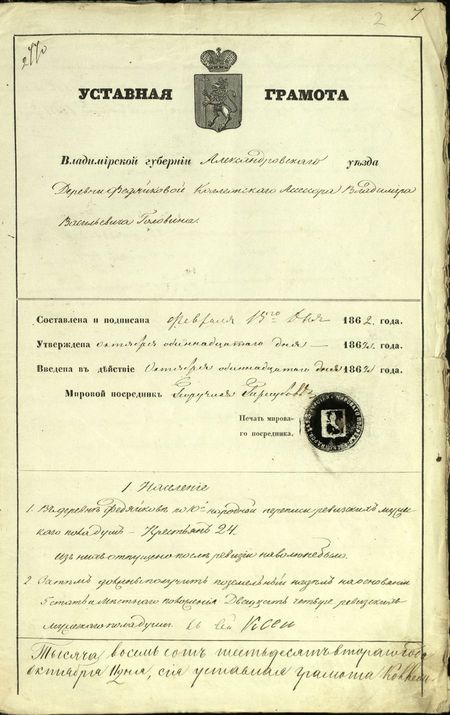 2 7
2770
УСТАВНАЯ ГРАМОТА
Владимірской губерніи Александровскаго уѣзда
Деревни Федяйковой Коллежскаго Ассесора Владиміра
Васильевича Головина.
Составлена и подписана февраля 15го дня 1862 года.
Утверждена октября одиннадцатаго дня — 1862 года.
Введена въ дѣйствіе Октября одиннадцатаго дня 1862 года.
Мировой посредникъ Поручикъ
Печать мирова-
го посредника.
1. Населеніе
1. Въ деревнѣ Федяйковѣ по 10й народной переписи ревизскихъ мужс-
каго пола душъ — Крестьянъ 24.
Изъ нихъ отпущено послѣ ревизіи на волю небыло.
2 За тѣмъ должны получить поземельный надѣлъ на основаніи
5 статьи мѣстнаго положенія Двадцать четыре ревизскихъ
мужскаго пола души
Тысяча восемь сотъ шестьдесятъ втораго года
октября 11 дня, сія уставная грамота